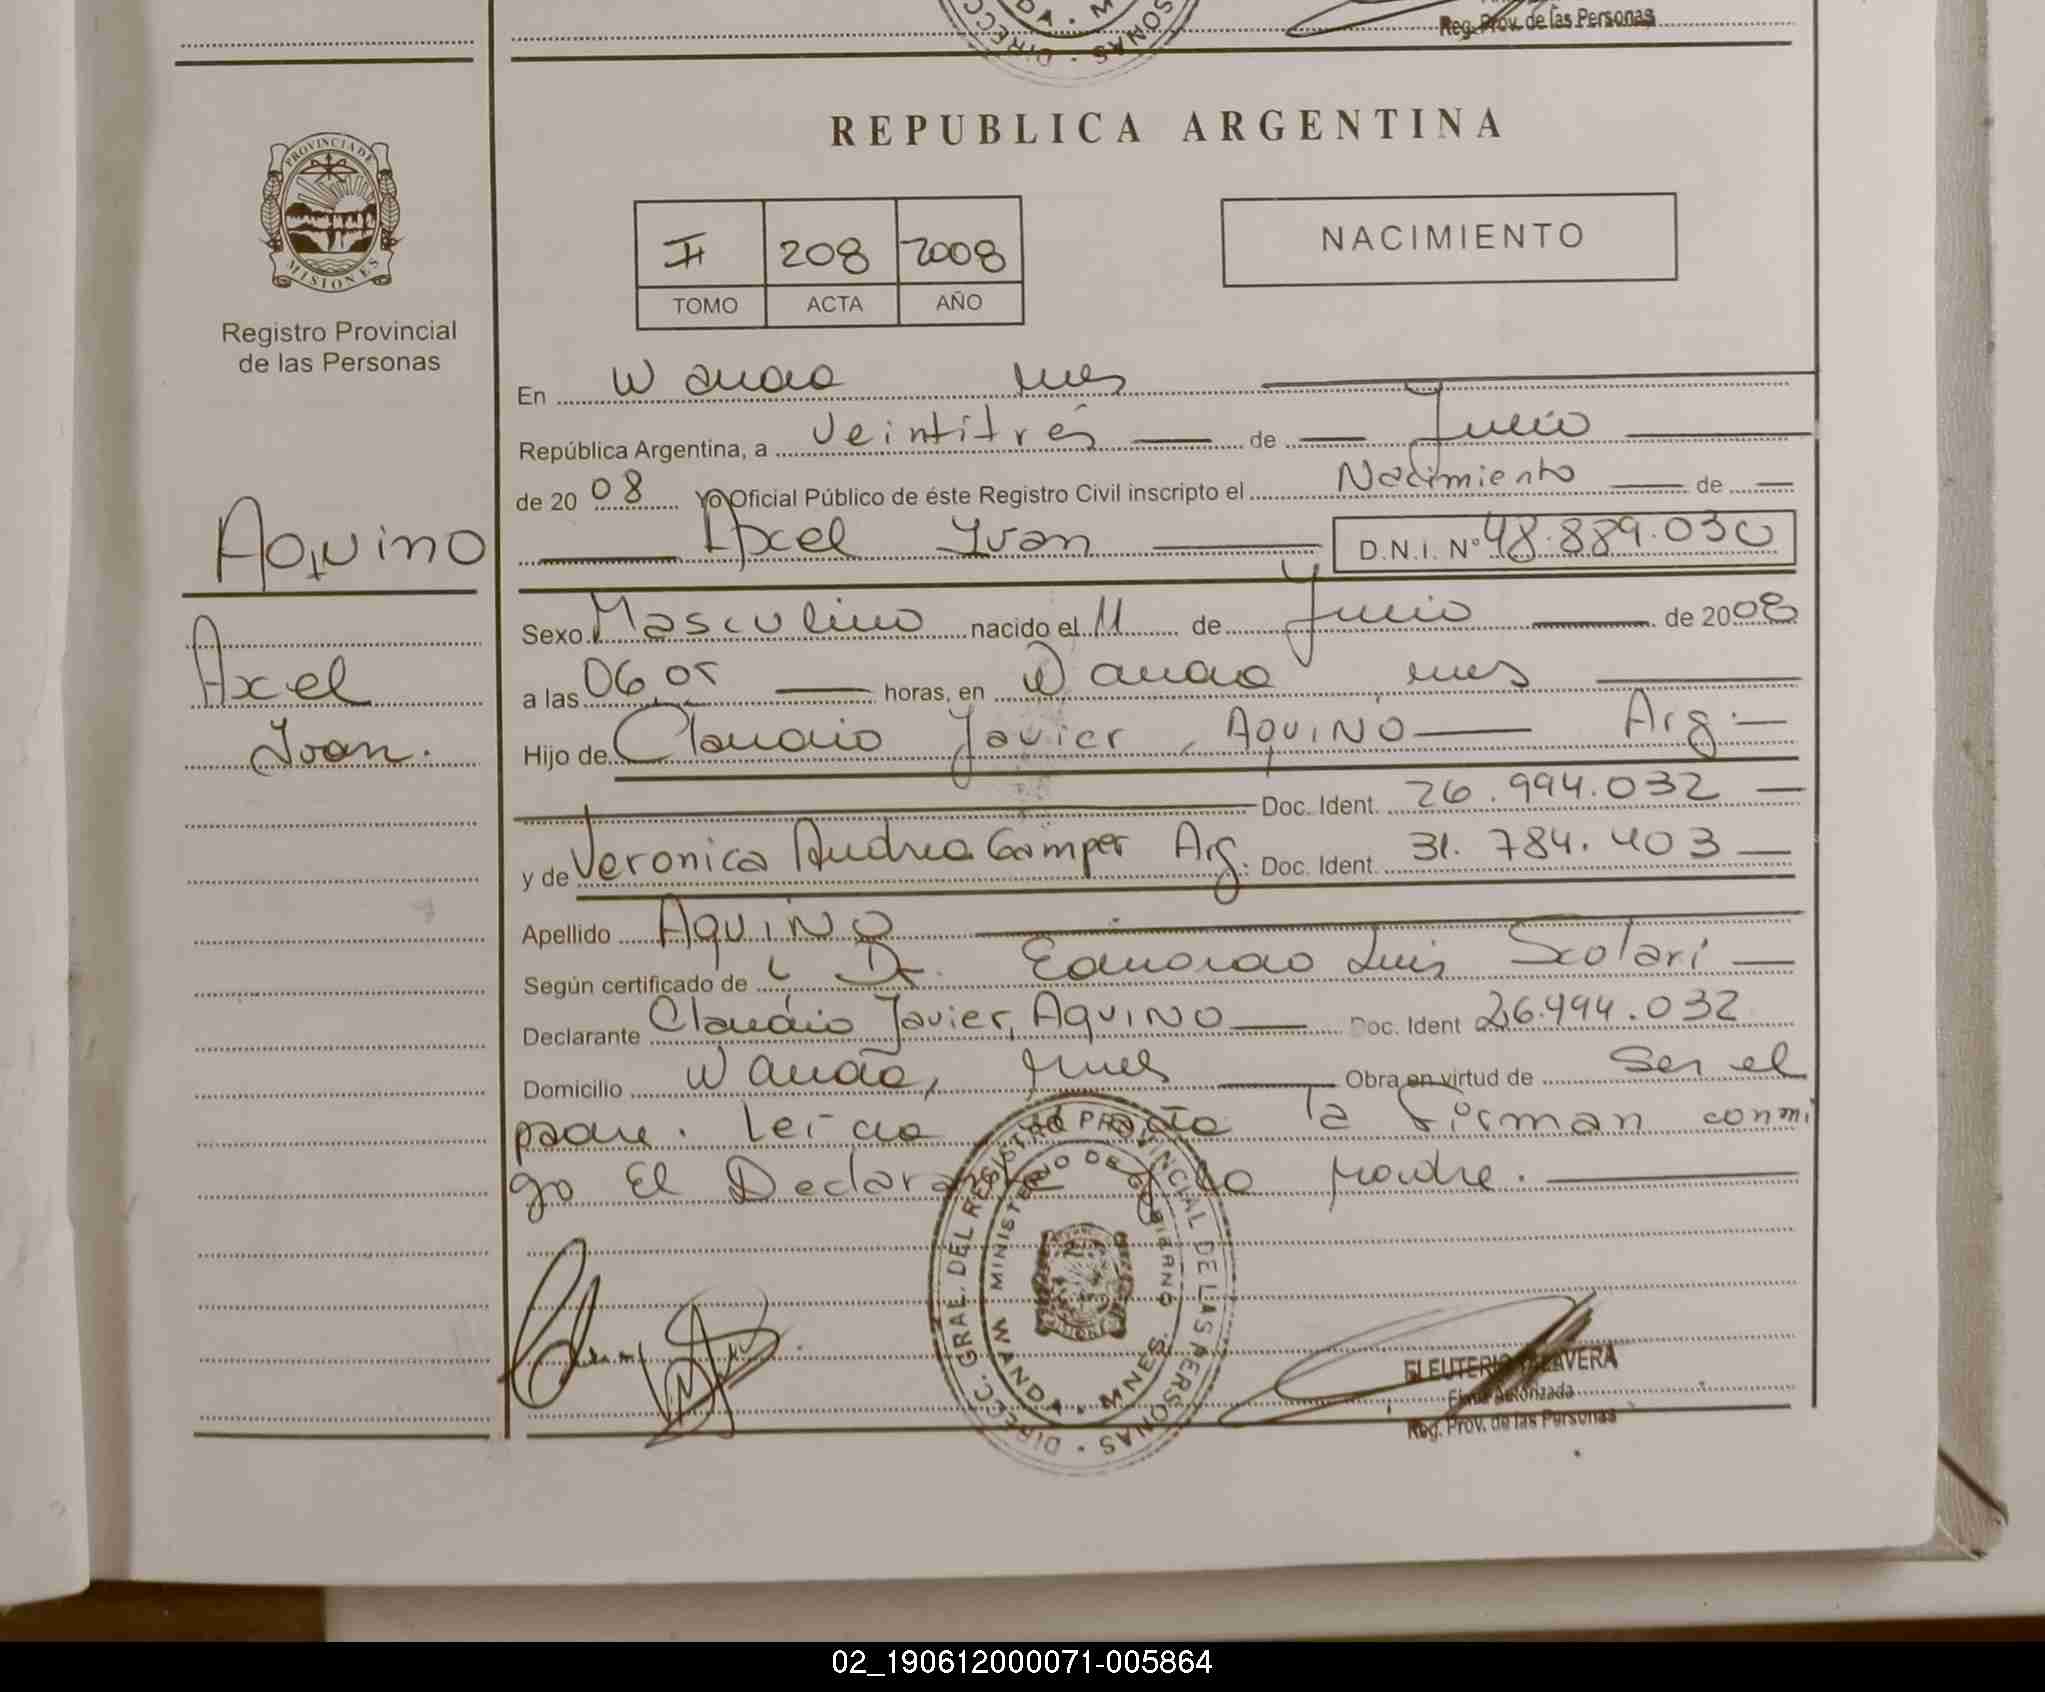 Reg. Prov. de las Personas
REPUBLICA ARGENTINA
PROVINCIA DE MISIONES
Registro Provincial
de las Personas
II 208 2008
TOMO ACTA AÑO
NACIMIENTO
Aquino
Axel
Ivan.
En Wanda Mnes
República Argentina, a Veintitrés de Julio
de 2008 Yo Oficial Público de éste Registro Civil inscripto el Nacimiento de
Axel Ivan D.N.I. N° 48.889.030
Sexo Masculino nacido el 11 de de 2008
a las 06,05 horas, en Wanda, Mnes
Hijo de Claudio Javier, AQUINO Arg.
Doc. Ident. 26.994.032
y de Veronica Andrea Gamper Arg. Doc. Ident. 31.784.403
Apellido AQUINO
Según certificado de Dr. Eduardo Luis Scolari
Declarante Claudio Javier, AQUINO Doc. Ident 26.994.032
Domicilio Wanda, Mnes Obra en virtud de Ser el
padre. Leida el Acta la firman conmi
go El Declarante y la Madre.
DIRECC. GRAL. DEL REGISTRO PROVINCIAL DE LAS PERSONAS
MINISTERIO DE GOBIERNO
WANDA - MNES.
ELEUTERIO TALAVERA
Firma Autorizada
Reg. Prov. de las Personas
02_190612000071-005864